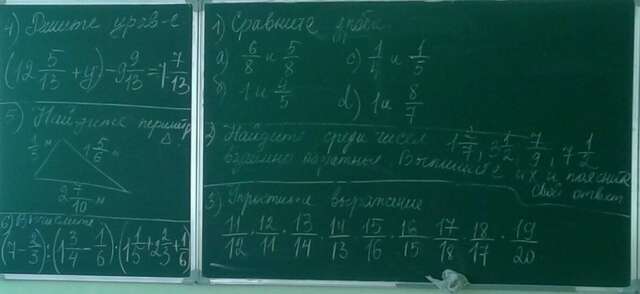 4) Решите урав-е
(12 5/13 + y) - 9 9/13 = 1 7/13
5) Найдите периметр
△
1/5 м 1 5/6 м
2 7/10 м
6) Вычислите
1) Сравните дроби
а) 6/8 и 5/8 c)
б) 1 и d) 1 и 8/7
2) Найдите среди чисел 7/9, 7 1/2
взаимно обратные. Выпишите их и поясните
свой ответ
3) Упростите выражение
11/12 · 12/11 · 13/14 · 14/13 · 15/16 · 16/15 · 17/18 · 18/17 · 19/20